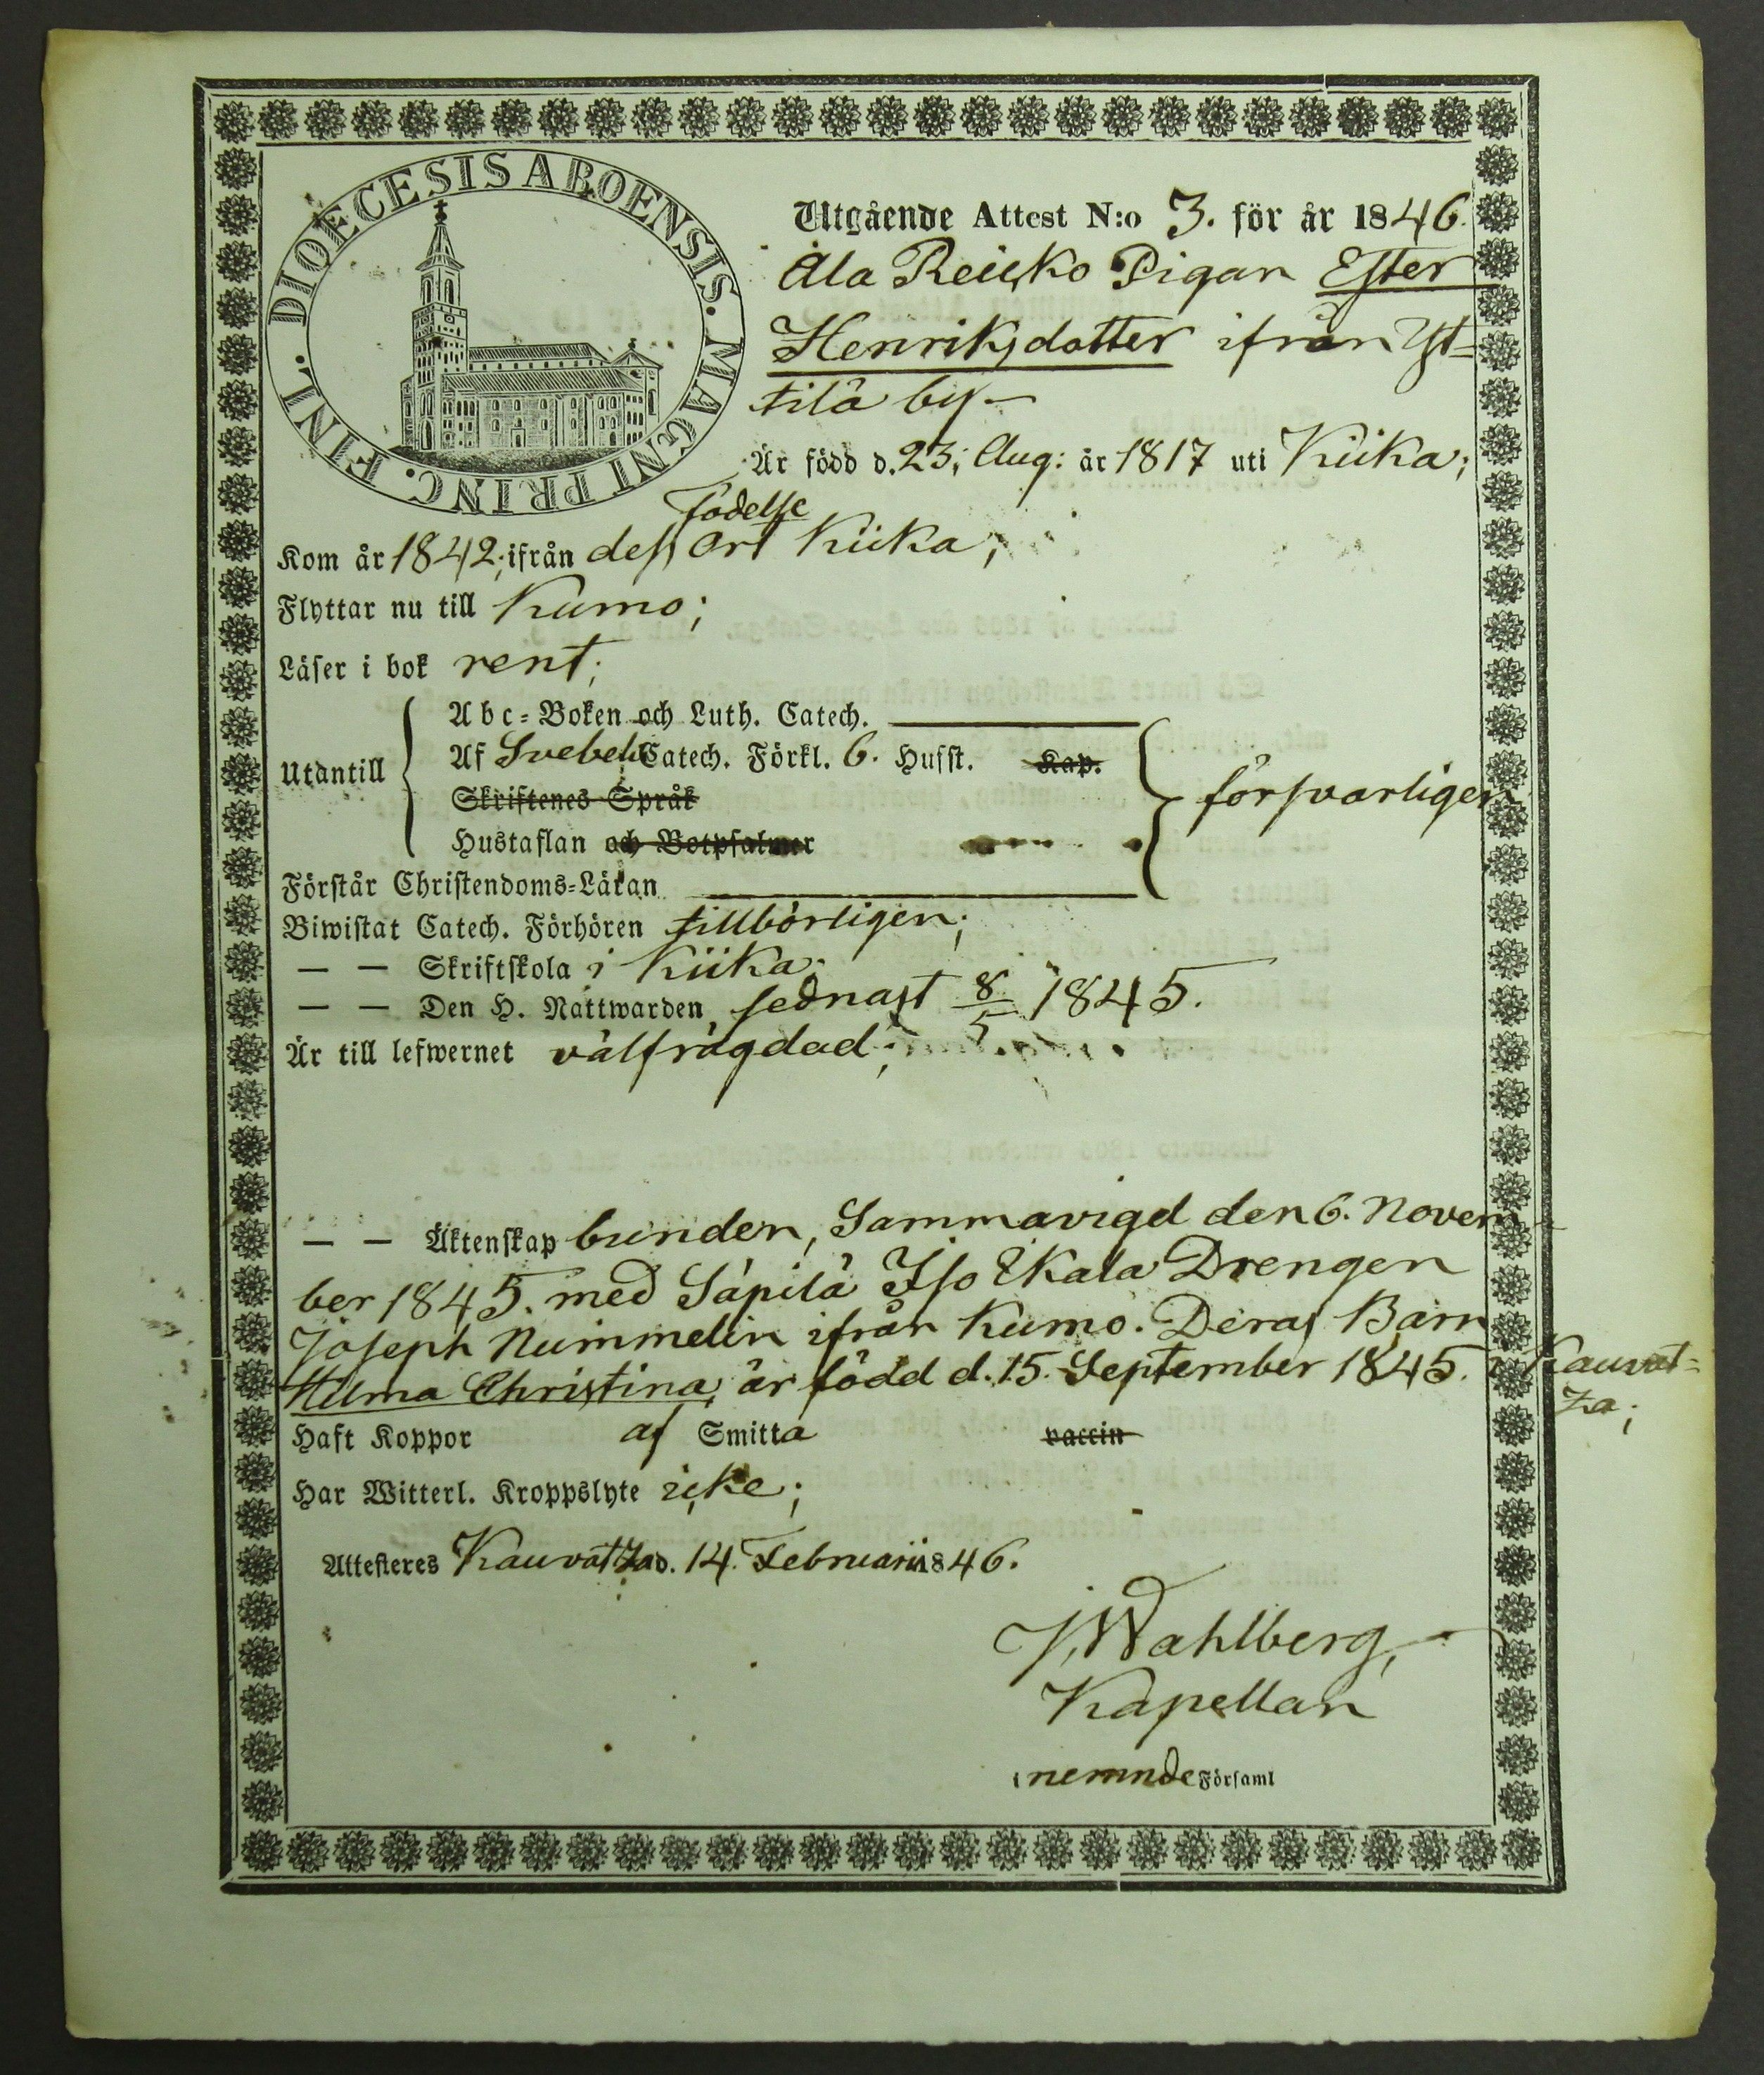 DIOECESIS ABOENSIS. MAGNI PRINC. FINL.
Utgående Attest N:o 3. för år 1846.
Ala Reicko Pigan Ester
Henriksdotter ifrån Yt-
tilä by
Är född d. 23; Aug: år 1817 uti Kiika;
födelse
Kom år 1842; ifrån dess Ort Kiika;
Flyttar nu till Kumo;
Läser i bok rent;
Abc-Boken och Luth. Catech.
Utantill
Af Svebelii Catech. Förkl. 6. Husst. Kap.
försvarligen
Skriftenes Språk
Hustaflan och Botpsalmer
Förstår Christendoms-Läran
Biwistat Catech. Förhören tillbörligen;
— — Skriftskola i Kiika.
— — Den H. Nattwarden sednast 8/5 1845.
Är till lefwernet välfrägdad;
— — Äktenskap bunden, Sammavigd den 6. Novem-
ber 1845. med Säpilä Iso Ekala Drengen
Joseph Nummelin ifrån Kumo. Deras Barn
Hilma Christina, är född d. 15. September 1845. i Kauvat-
za;
Haft Koppor af Smitta vaccin
Har Witterl. Kroppslyte icke;
Attesteres Kauvatza d. 14. Februarii 1846.
J. Wahlberg,
Kapellan
i nemnde Församl